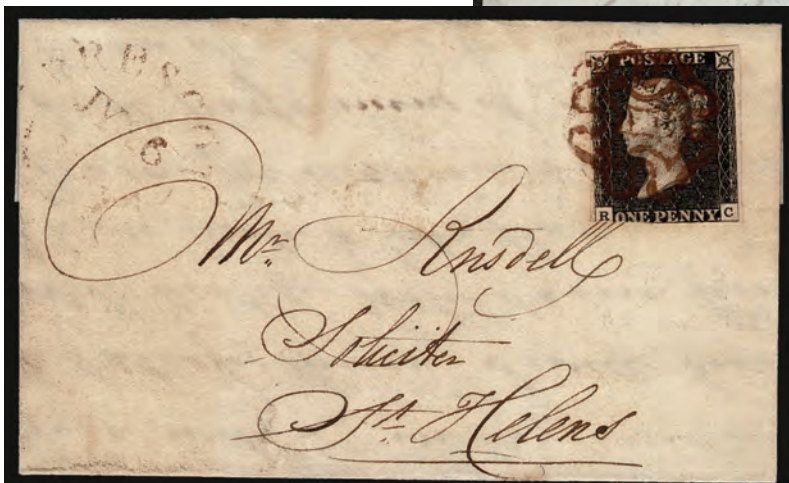 PRESCOT
JY 6
POSTAGE
R ONE PENNY C
Mr. Ansdell
Soliciter
St. Helens